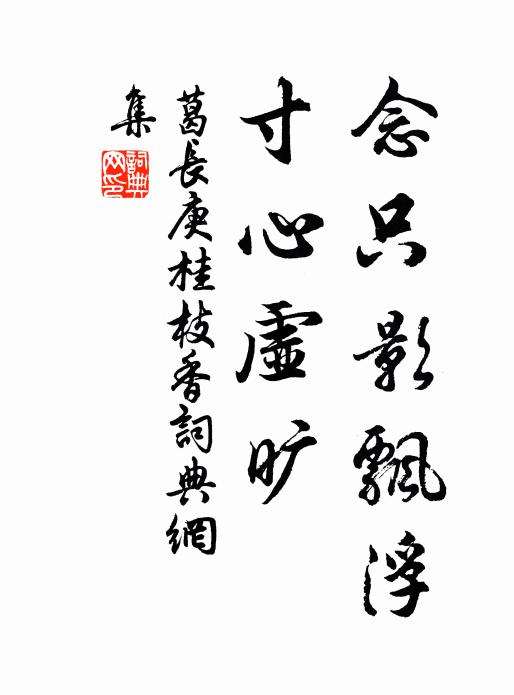 念只影飄浮
寸心虛旷
葛長庚桂枝香詞典網
集
詞典網印